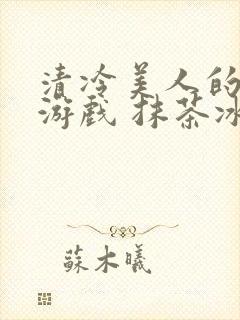 清冷美人的
游戏 抹茶冰
蘇木曦